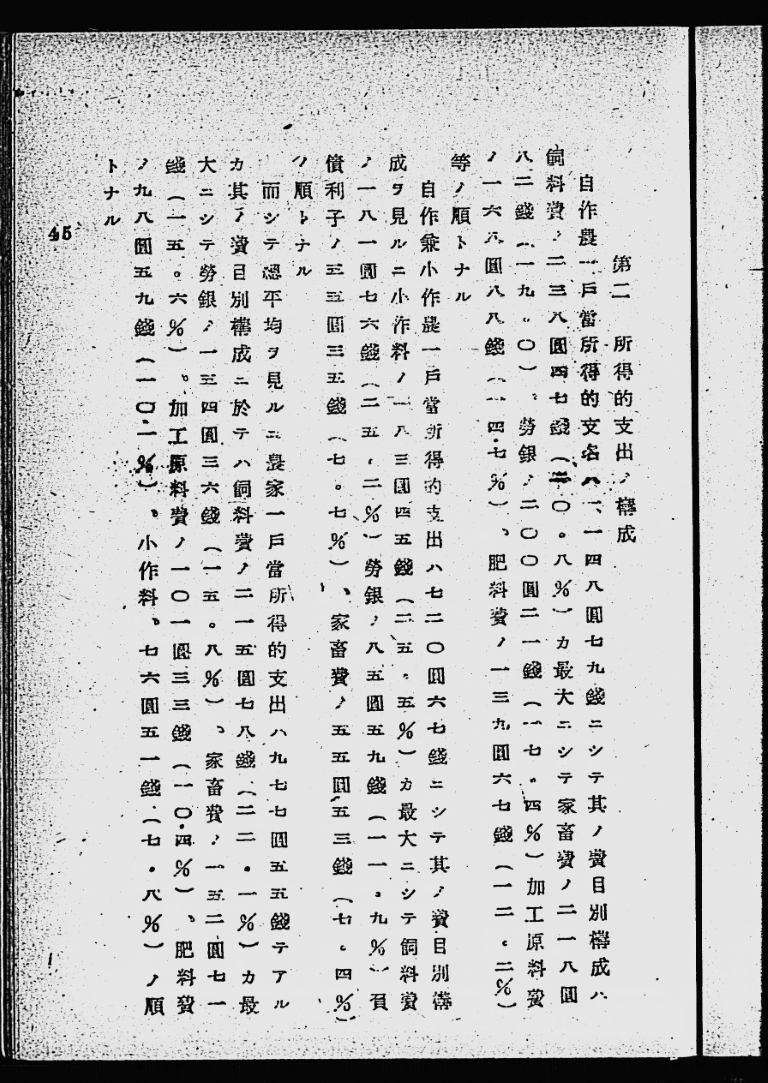 第二　所得的支出ノ構成
自作農一戸當所得的支出ハ一、一四八圓七九錢ニシテ其ノ費目別構成ハ
飼料費ノ二三八圓四七錢（二〇。八％）カ最大ニシテ家畜費ノ二一八圓
八二錢（一九。〇）、勞銀ノ二〇〇圓二一錢（一七。四％）加工原料費
ノ一六八圓八八錢（一四・七％）、肥料費ノ一三九圓六七錢（一二。二％）
等ノ順トナル
自作兼小作農一戸當所得的支出ハ七二〇圓六七錢ニシテ其ノ費目別構
成ヲ見ルニ小作料ノ一八三圓四五錢（二五。五％）カ最大ニシテ飼料費
ノ一八一圓七六錢（二五・二％）勞銀ノ八五圓五九錢（一一。九％）負
債利子ノ五五圓三五錢（七。七％）、家畜費ノ五五圓五三錢（七。四％）
ノ順トナル
而シテ總平均ヲ見ルニ農家一戸當所得的支出ハ九七七圓五五錢テアル
カ其ノ費目別構成ニ於テハ飼料費ノ二一五圓七八錢（二二・一％）カ最
大ニシテ勞銀ノ一五四圓三六錢（一五。八％）、家畜費ノ一五二圓七一
錢（一五。六％）。加工原料費ノ一〇一圓三三錢（一〇・四％）、肥料費
ノ九八圓五九錢（一〇・一％）、小作料、七六圓五一錢（七・八％）ノ順
トナル
45